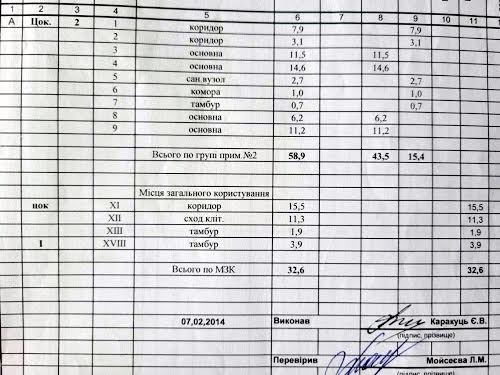 1 2 3 4 5 6 7 8 9 10 11
А Цок. 2 1 коридор 7,9 7,9
2 коридор 3,1 3,1
3 основна 11,5 11,5
4 основна 14,6 14,6
5 сан.вузол 2,7 2,7
6 комора 1,0 1,0
7 тамбур 0,7 0,7
8 основна 6,2 6,2
9 основна 11,2 11,2
Всього по групі прим.№2 58,9 43,5 15,4
Місця загального користування
цок XI коридор 15,5 15,5
XII сход кліт. 11,3 11,3
XIII тамбур 1,9 1,9
1 XVIII тамбур 3,9 3,9
Всього по МЗК 32,6 32,6
07,02,2014 Виконав Каракуць Є.В.
(підпис, прізвище)
Перевірив Мойсеєва Л.М.
(підпис, прізвище)